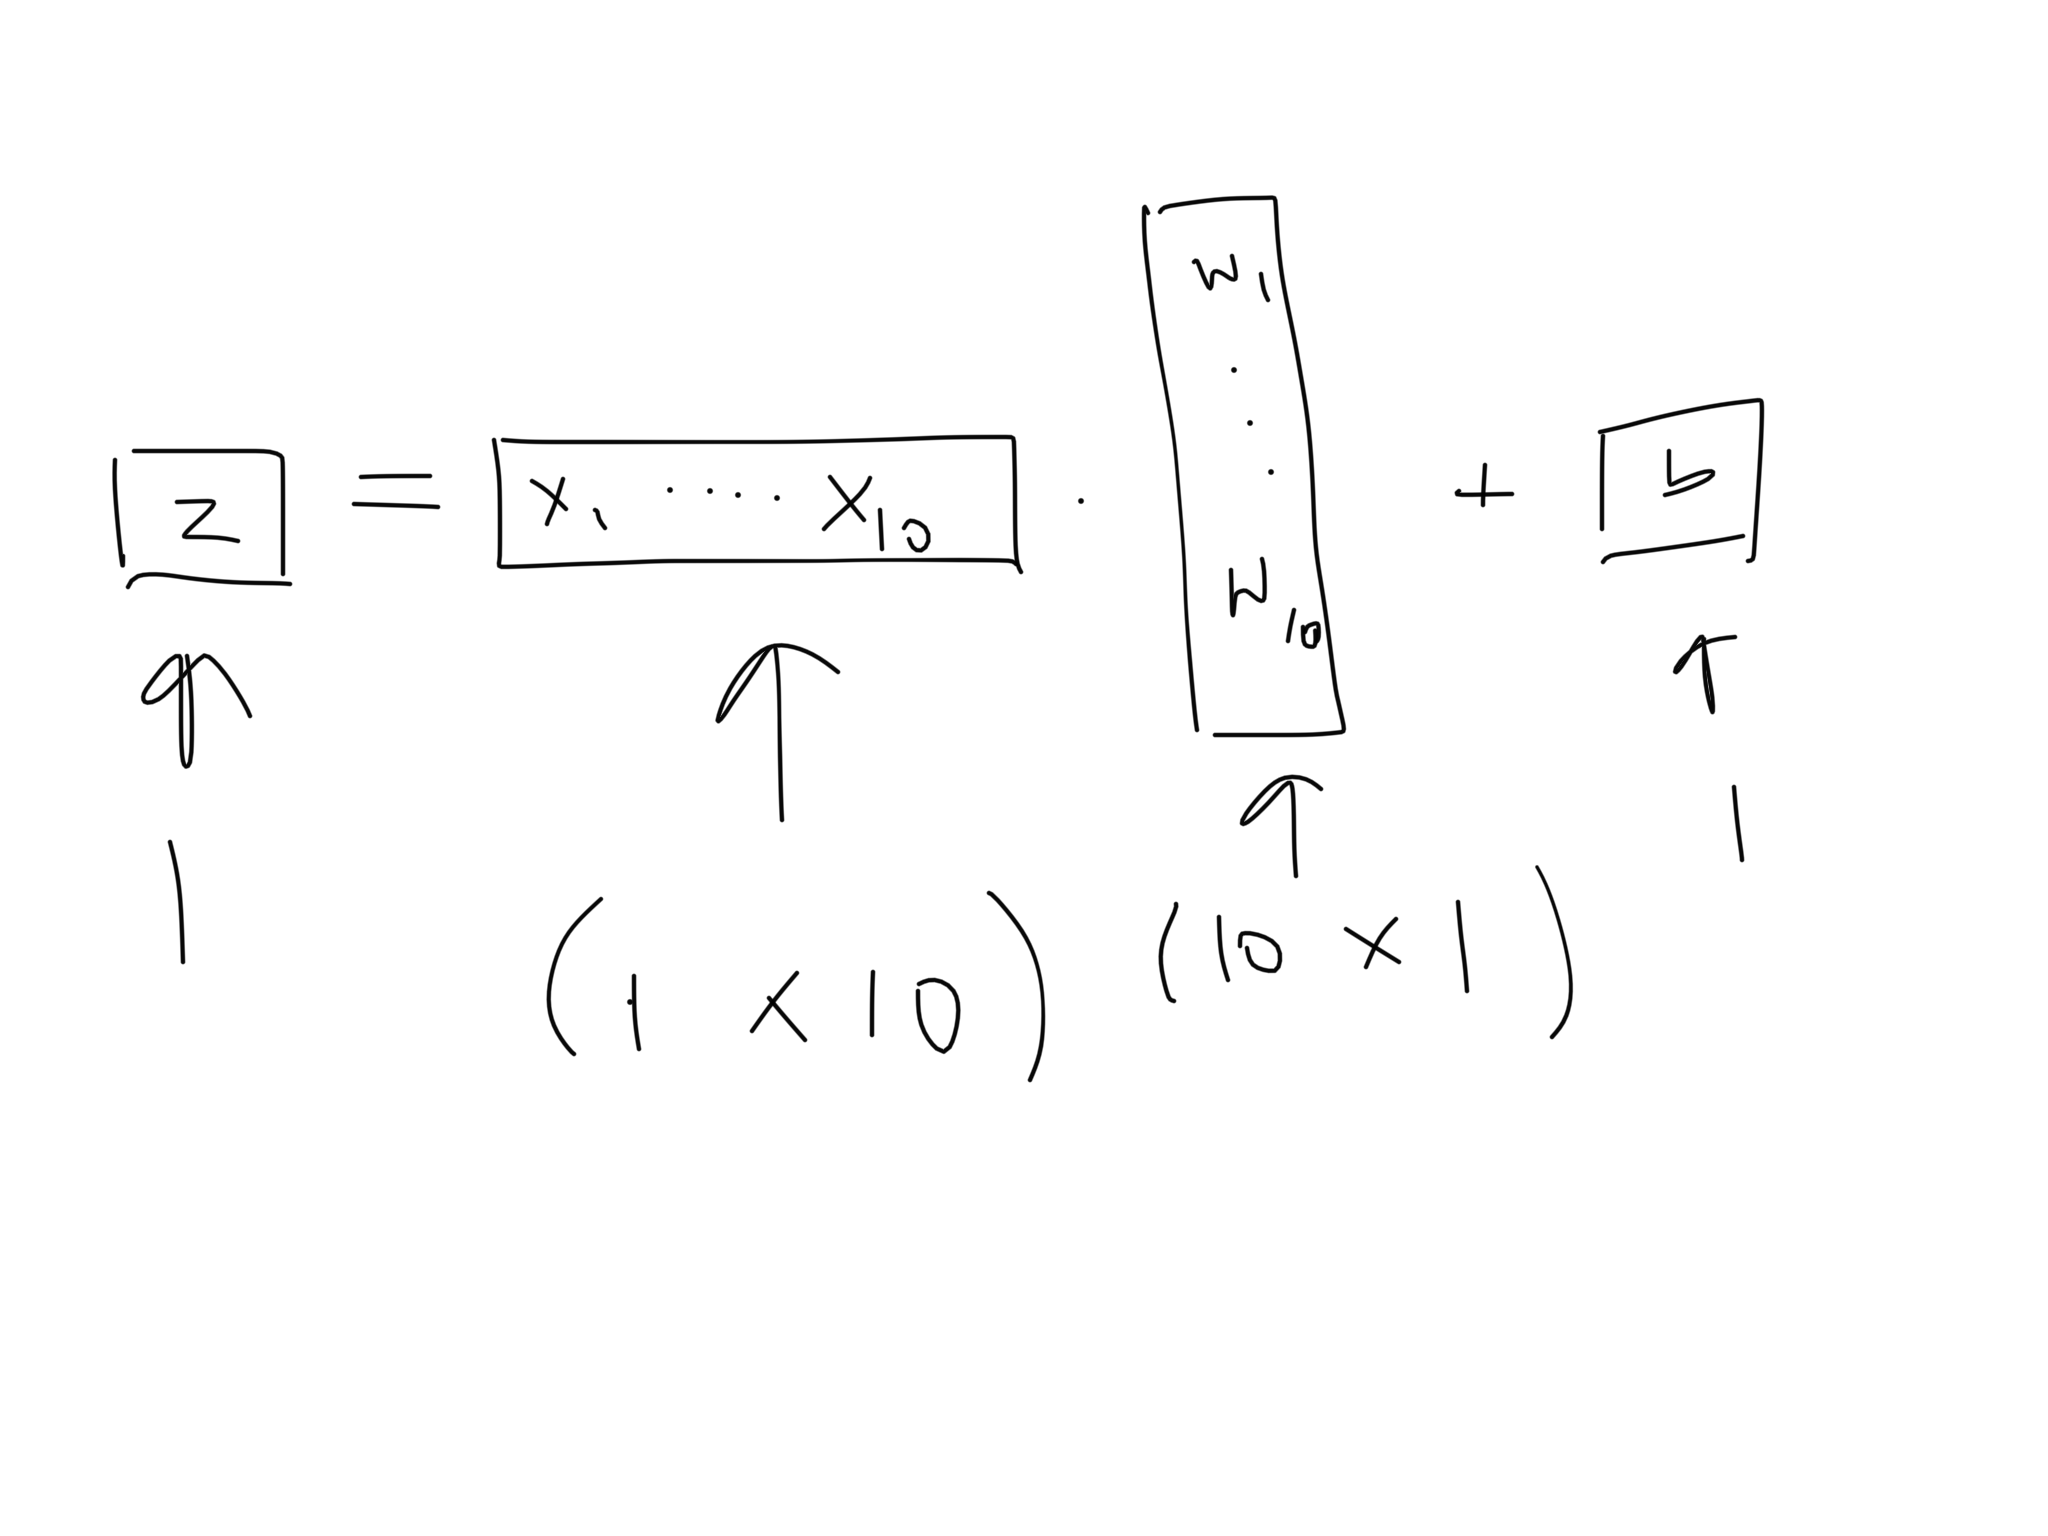 z = x₁ ..... x₁₀ . w₁ ... w₁₀ + b
1 (1 x 10) (10 x 1) 1